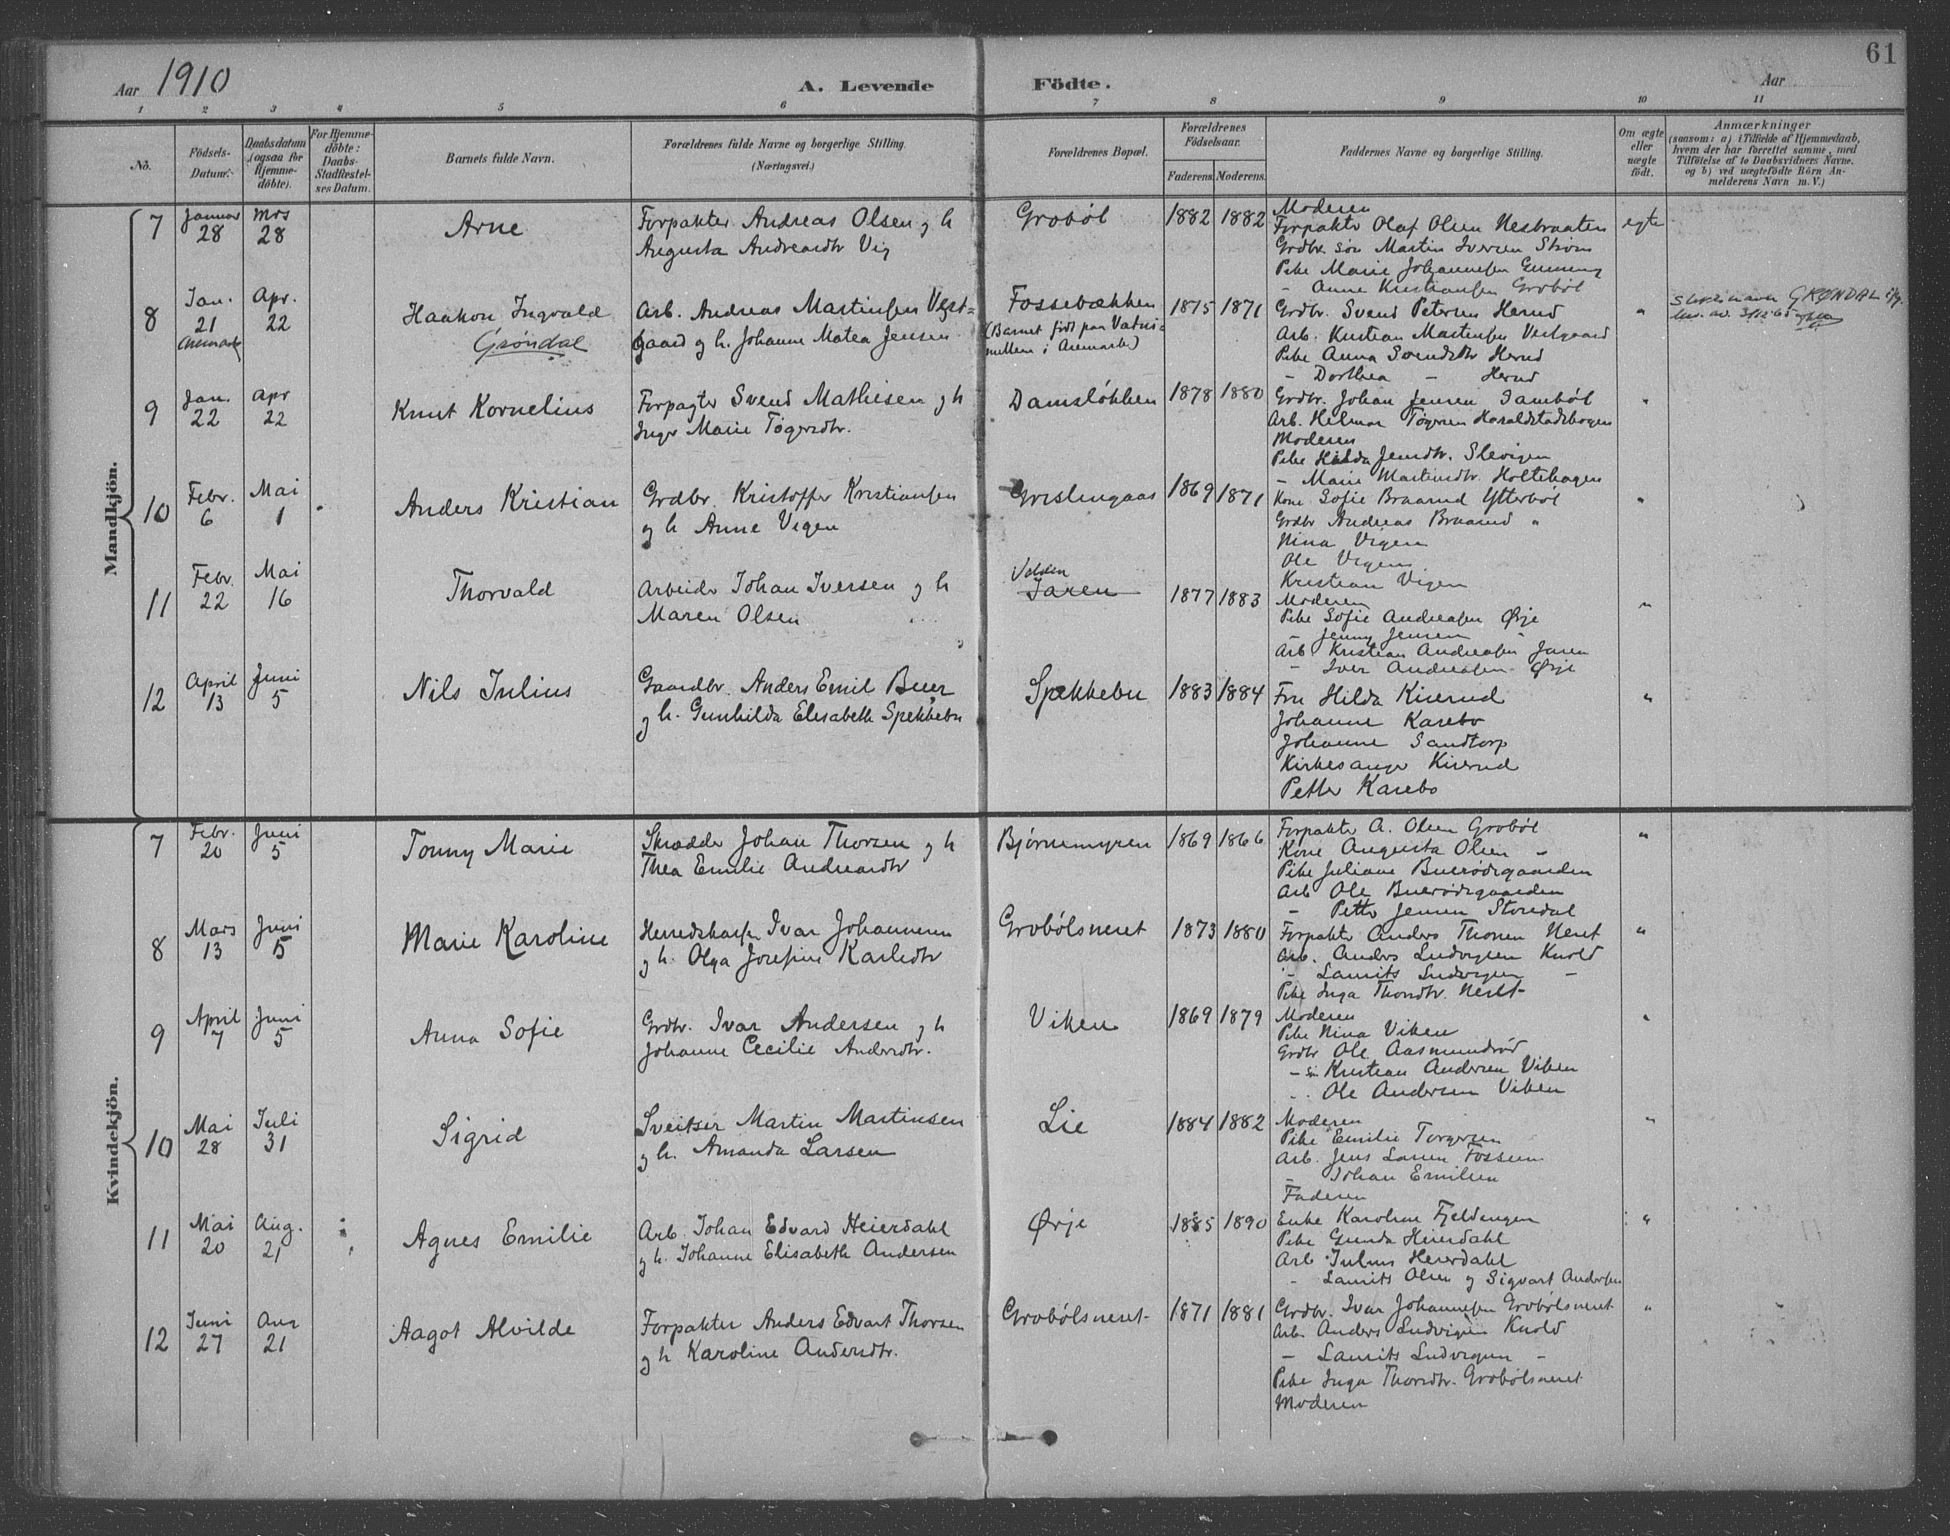 61
Aar 1910
A. Levende Födte.
Aar
1 2 3 4 5 6 7 8 9 10 11
No.
Födsels-Datum.
Daabsdatum (ogsaa for Hjemme-döbte).
For Hjemme-döbte: Daabs-Stadfæstel-ses Datum.
Barnets fulde Navn.
Forældrenes fulde Navne og borgerlige Stilling.
(Næringsvei.)
Forældrenes Bopæl.
Forældrenes Födselsaar.
Faderens. Moderens.
Faddernes Navne og borgerlige Stilling.
Om ægte eller uægte födt.
Anmærkninger
(saasom: a) i Tilfælde af Hjemmedaab,
hvem der har forrettet samme, med
Tilföielse af to Daabsvidners Navne.
og b) ved uægtefödte Börn An-
melderens Navn m. V.)
Mandkjön.
7 Januar 28 Mrs 28 Arne
Forpakter Andreas Olsen g h
Augusta Andreasdtr Vig
Grobøl 1882 1882
Moderen
Forpakter Olaf Olsen Nesbraaten
Grdbr. søn Martin Iversen Strøm
Pike Marie Johannesen
- Anne Kristiansen Grobøl
egte
8 Jan. 21 Aremark Apr. 22 Haakon Ingvald
Grøndal
Arb. Andreas Martinsen Vest=
gaard g h. Johanne Matea Jensen
Fossebækken
(Barnet født paa
i Aremark)
1875 1871
Grdbr. Svend Petersen Herud
Arb. Kristian Martinsen Vestgaard
Pike Anna Svendsdtr Herud
- Dorthea - Herud
"
GRØNDAL
9 Jan. 22 Apr 22 Knut Kornelius
Forpagter Svend Mathisen g h
Inger Marie Tøgersdtr.
Damsløkken 1878 1880
Grdbr. Johan Jensen Dambøl
Arb. Helmar Tøgersen Haraldstadsbogen
Moderen
Pike Hilda Jensdtr. Slevigen
- Marie Martinsdtr. Holtehagen
"
10 Febr. 6 Mai 1 Anders Kristian
Grdbr. Kristoffer Kristiansen
g h Anne Vegen
Grislingaas 1869 1871
Kone Sofie Braarud Ytterbøl
Grdbr Andreas Braarud "
Nina Vigen
Ole Vigen
Kristian Vigen
"
11 Febr. 22 Mai 16 Thorvald
Arbeider Johan Iversen g h
Maren Olsen
Jaren 1877 1883
Moderen
Pike Sofie Andreasen Ørje
- Jenny Jensen "
Arb. Kristian Andreasen Jaren
- Iver Andreasen Ørje
"
12 April 13 Juni 5 Nils Julius
Gaardbr. Anders Emil Buer
g h. Gunhilda Elisabeth Spekkebu
Spekkebu 1883 1884
Fru Hilda Kirerud
Johanne Karebo
Johanne Sandtorp
Kirkesanger Kirerud
Petter Karebo
"
Kvindekjön.
7 Febr. 20 Juni 5 Tonny Marie
Skrædder Johan Thorsen g h
Thea Emilie Andreasdtr
Bjørnemyren 1869 1866
Forpakter A. Olsen Grobøl
Kone Augusta Olsen "
Pike Juliane Buerødsgaarden
Arb Ole Buerødsgaarden
- Petter Jensen Storedal
"
8 Mars 13 Juni 5 Marie Karoline
Herredskasser Ivar Johannesen
g h. Olga Josefine Karlsdtr
Grobølsneret 1873 1880
Forpakter Anders Thorsen Neret
Arb. Anders Ludvigsen Knold
- Laurits Ludvigsen -
Pike Inga Thorsdtr. Neret
"
9 April 7 Juni 5 Anna Sofie
Grdbr. Ivar Andersen g h
Johanne Cecilie Andersdtr.
Viken 1869 1879
Moderen
Pike Nina Viken
Grdbr Ole Aasmundrød
- Kristian Andersen Viken
Ole Andersen Viken
"
10 Mai 28 Juli 31 Sigrid
Sveitser Martin Martinsen
g h. Amanda Larsen
Lie 1884 1882
Moderen
Pike Emilie Torgersen
Arb. Jens Larsen Fossum
- Johan Emilsen
Faderen
"
11 Mai 20 Aug. 21 Agnes Emilie
Arb. Johan Edvard Heierdahl
g h. Johanne Elisabeth Andersen
Ørje 1885 1890
Enke Karoline Fjeldengen
Pike Gunda Heierdahl
Arb. Julius Heierdahl
- Laurits Olsen g Sigvart Andersen
"
12 Juni 27 Aug 21 Aagot Alvilde
Forpakter Anders Edvart Thorsen
g h Karoline Andersdtr.
Grobølsneret 1871 1881
Grdbr. Ivar Johannesen Grobølsneret
Arb. Anders Ludvigsen Knold
- Laurits Ludvigsen -
Pike Inga Thorsdtr. Grobølsneret
Moderen
"